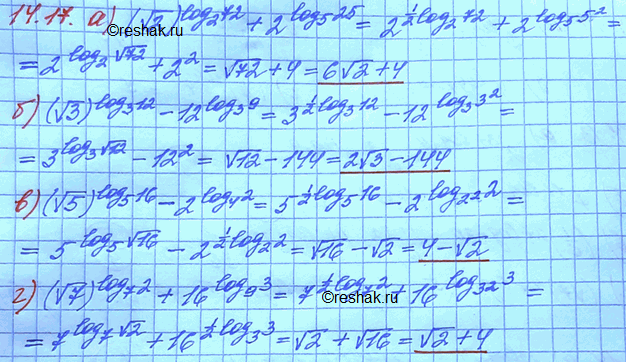 14.17. а) (√2)^log₂72 + 2^log₅25 = 2^½log₂72 + 2^log₅5² =
= 2^log₂√72 + 2² = √72 + 4 = 6√2 + 4
б) (√3)^log₃12 − 12^log₃9 = 3^½log₃12 − 12^log₃3² =
= 3^log₃√12 − 12² = √12 − 144 = 2√3 − 144
в) (√5)^log₅16 − 2^log₄2 = 5^½log₅16 − 2^log₂²2 =
= 5^log₅√16 − 2^½log₂2 = √16 − √2 = 4 − √2
г) (√7)^log₇2 + 16^log₉3 = 7^½log₇2 + 16^log₃²3 =
= 7^log₇√2 + 16^½log₃3 = √2 + √16 = √2 + 4
©reshak.ru
©reshak.ru